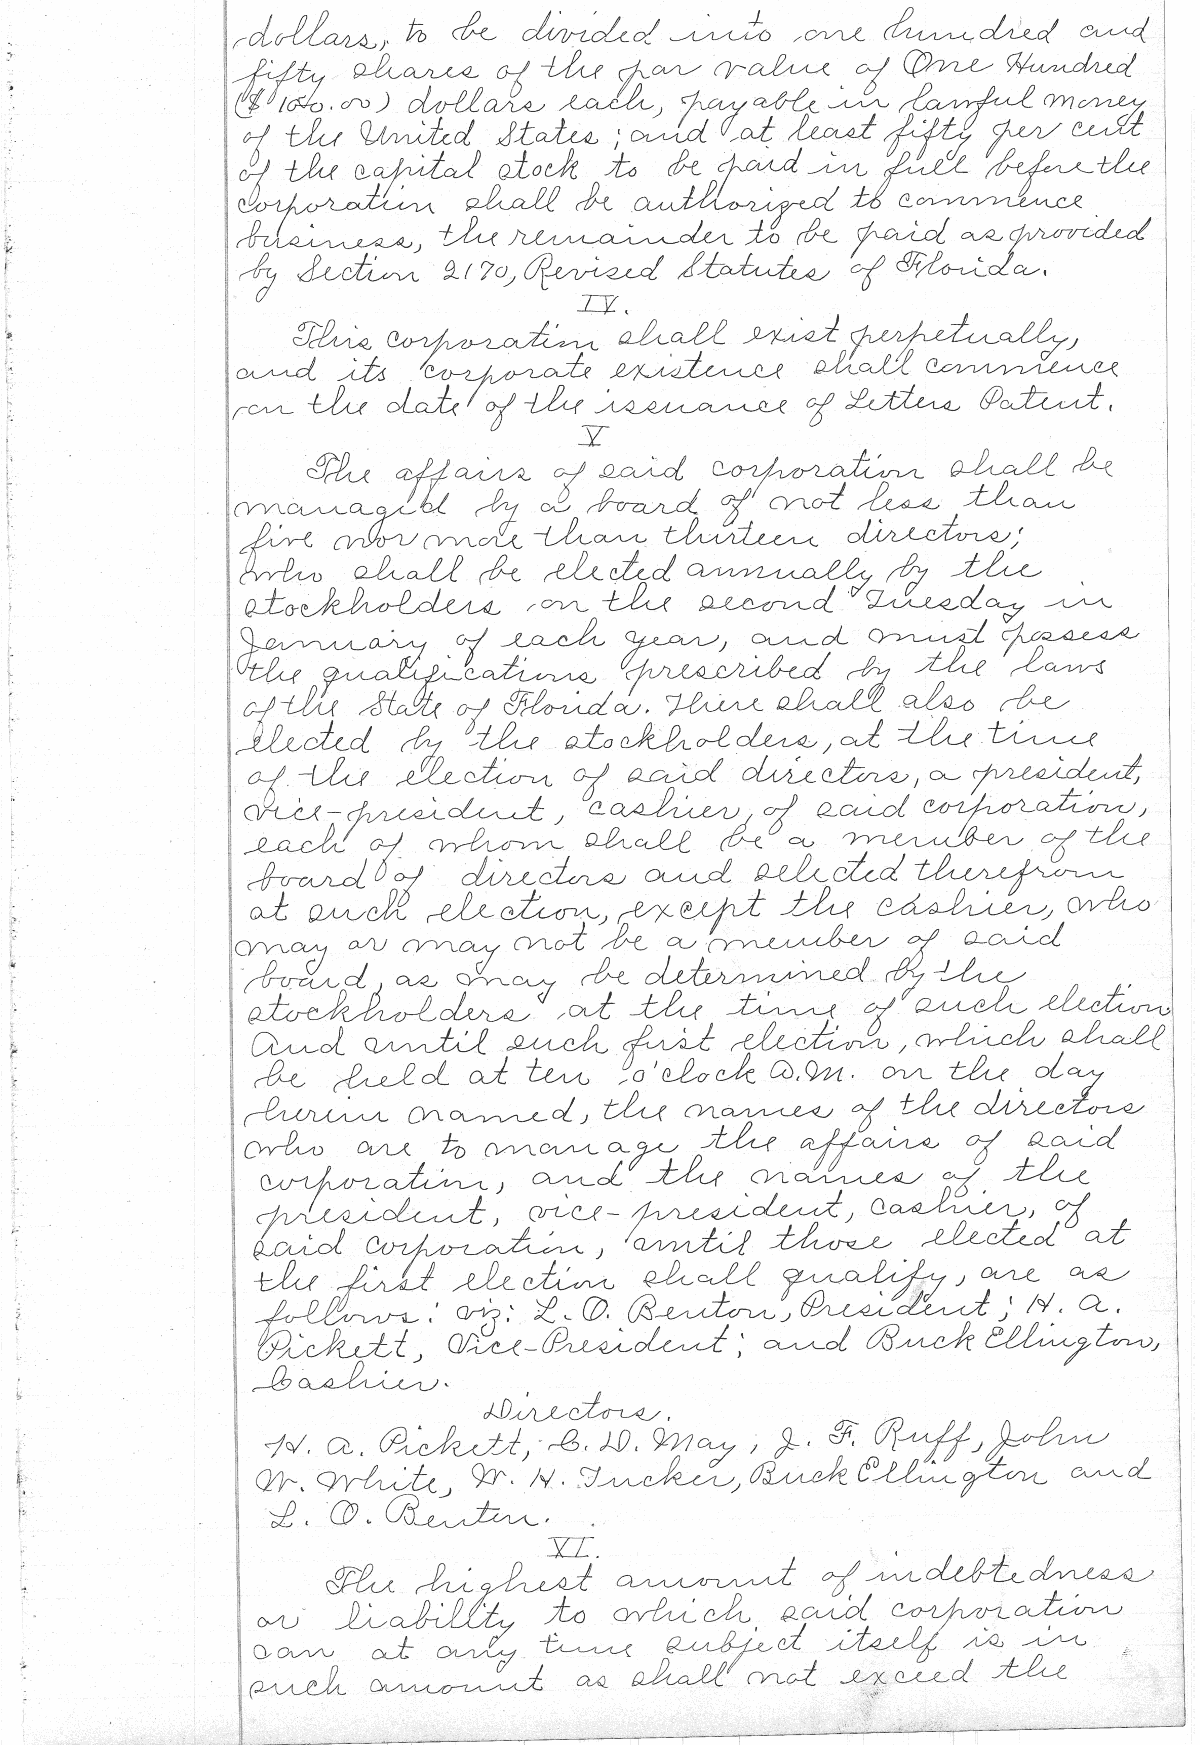 dollars, to be divided into one hundred and
fifty shares of the par value of One Hundred
($100.00) dollars each, payable in lawful money
of the United States; and at least fifty per cent
of the capital stock to be paid in full before the
corporation shall be authorized to commence
business, the remainder to be paid as provided
by Section 2170, Revised Statutes of Florida.
IV.
This corporation shall exist perpetually,
and its corporate existence shall commence
on the date of the issuance of Letters Patent.
V
The affairs of said corporation shall be
managed by a board of not less than
five nor more than thirteen directors;
who shall be elected annually by the
stockholders on the second Tuesday in
January of each year, and must possess
the qualifications prescribed by the laws
of the State of Florida. There shall also be
elected by the stockholders, at the time
of the election of said directors, a president,
vice-president, cashier, of said corporation,
each of whom shall be a member of the
board of directors and selected therefrom
at such election, except the cashier, who
may or may not be a member of said
board, as may be determined by the
stockholders at the time of such election
And until such first election, which shall
be held at ten o'clock A.M. on the day
herein named, the names of the directors
who are to manage the affairs of said
corporation, and the names of the
president, vice-president, cashier, of
said corporation, until those elected at
the first election shall qualify, are as
follows: viz: L. O. Benton, President; H. A.
Pickett, Vice-President; and Buck Ellington,
Cashier.
Directors.
H. A. Pickett, C. D. May, J. F. Ruff, John
W. White, W. H. Tucker, Buck Ellington and
L. O. Benton.
VI.
The highest amount of indebtedness
or liability to which said corporation
can at any time subject itself is in
such amount as shall not exceed the